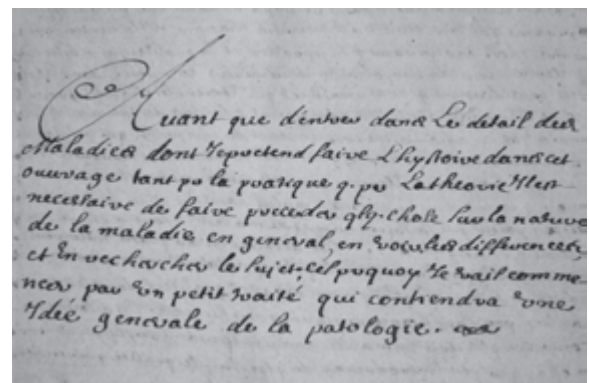 Auant que d'entrer dans Le detail des
Maladies dont Je pretend faire L'hystoire dans cet
ouurage tant pr la pratique q. pr La theorie Il est
necessaire de faire preceder qlq. chose sur la nature
de la maladie en general, en voir les differences,
et En rechercher le sujet. C'est prquoy Je vais comme-
ncer par Vn petit traité qui contiendra Vne
Idée generale de la patologie.